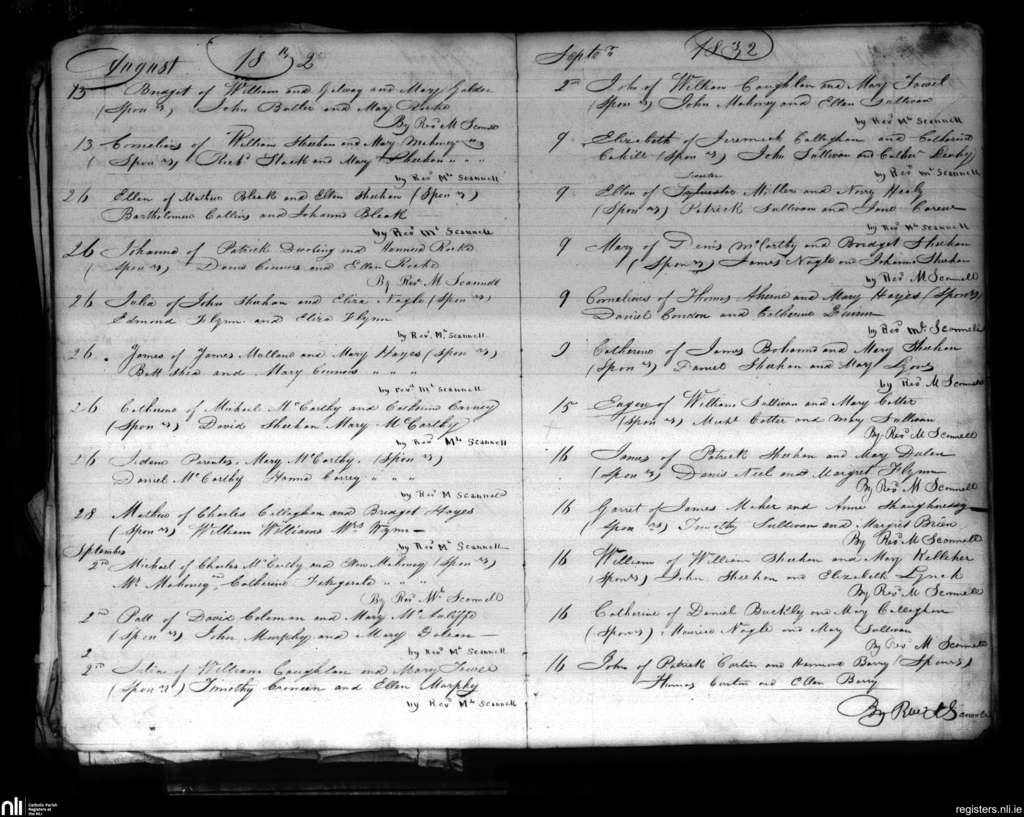 August 1832
13 Bridget of William and Galway and Mary Golden
(Spon rs) John Butler and Mary Roche
By Revd M Scannell
13 Cornelius of William Sheehan and Mary Meheney
(Spon rs) Richd Stack and Mary Sheehan " " "
by Revd Mr Scannell
26 Ellen of Mathew Bleak and Ellen Sheehan (Spon rs)
Bartholomew Collins and Johanna Bleak
by Revd Mr Scannell
26 Johanna of Patrick Dooling and Honnora Roche
(Spon rs) Denis Connors and Ellen Roche
By Revd M Scannell
26 Julia of John Sheehan and Eliza Nagle (Spon rs)
Edmond Flynn and Eliza Flynn
by Revd Mr Scannell
26 James of James Mollane and Mary Hayes (Spon rs)
Batt Shea and Mary Connors " " "
by revd Mr Scannell
26 Catherine of Michael McCarthy and Catherine Carney
(Spon rs) David Sheehan Mary McCarthy
by Revd Mr Scannell
26 Idem Parentes. Mary McCarthy. (Spon rs)
Daniel McCarthy Hanna Correy " " "
by Revd M Scannell
28 Mathew of Charles Callaghan and Bridget Hayes
(Spon rs) William Williams Mrs Wynne
by Revd Mr Scannell
September
2nd Michael of Charles McCarthy and Nano Mahoney (Spon rs)
Mr Mahoney Catherine Fitzgerald " " "
By Revd Mr Scannell
2nd Patt of David Coleman and Mary McAuliffe
(Spon rs) John Murphy and Mary
by Revd Mr Scannell
2
2nd Julia of William Coughlan and Mary Fowel
(Spon rs) Timothy Croneen and Ellen Murphy
by Revd Mr Scannell
Septr 1832
2nd John of William Coughlan and Mary Fowel
(Spon rs) John Mahoney and Ellen Sullivan
by Revd Mr Scannell
9 Elizabeth of Jeremiah Callaghan and Catherine
Cahill (Spon rs) John Sullivan and Cather Leahy
by Revd Mr Scannell
9 Ellen of Sylvester Millers and Nory Healy
(Spon rs) Patrick Sullivan and Jane Carew
by Revd Mr Scannell
9 Mary of Denis McCarthy and Bridget Sheehan
(Spon rs) James Nagle and Johanna Sheehan
by Revd M Scannell
9 Cornelious of Thomas Aherne and Mary Hayes (Spon rs)
David Condon and Catherine
by Revd Mr Scannell
9 Catherine of James Bohanne and Mary Sheehan
(Spon rs) Daniel Sheehan and Mary Lyons
by Revd M Scannell
15 Eugene of William Sullivan and Mary Cotter
(Spon rs) Michl Cotter and Mary Sullivan
By Revd M Scannell
16 James of Patrick Sheehan and Mary Dulen
(Spon rs) Denis Neil and Margret Flynn
By Revd M Scannell
16 Garret of James Maher and Anne Shaughnessy
(Spon rs) Timothy Sullivan and Margret Brien
By Revd M Scannell
16 William of William Sheehan and Mary Kelleher
(Spon rs) John Sheehan and Elizabeth Lynch
By Revd M Scannell
16 Catherine of Daniel Buckley and Mary Callaghan
(Spon rs) Maurice Nagle and Mary Sullivan
By Revd M Scannell
16 John of Patrick Curtin and Hannora Barry (Spon rs)
Thomas Curtin and Ellen Barry
By Revd M Scannell
nli Catholic Parish
Registers at
the NLI
registers.nli.ie